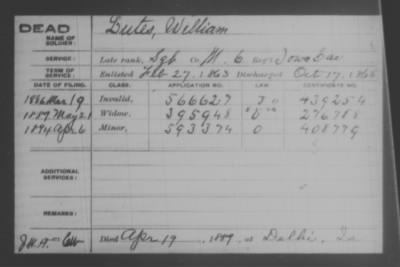 DEAD
NAME OF SOLDIER: Dutes, William
SERVICE: Late rank, Sgt Co. M, 6 Reg't Iowa Cav
TERM OF SERVICE: Enlisted Feb 27, 1863 Discharged Oct 17, 1865
DATE OF FILING. CLASS. APPLICATION NO. LAW. CERTIFICATE NO.
1886 Mar 19 Invalid, 566627 439254
1889 May 21 Widow, 395948 276788
1894 Apr 6 Minor, 593374 0 408779
ADDITIONAL SERVICES:
REMARKS:
Died Apr 19, 1889, at Delhi, Ia